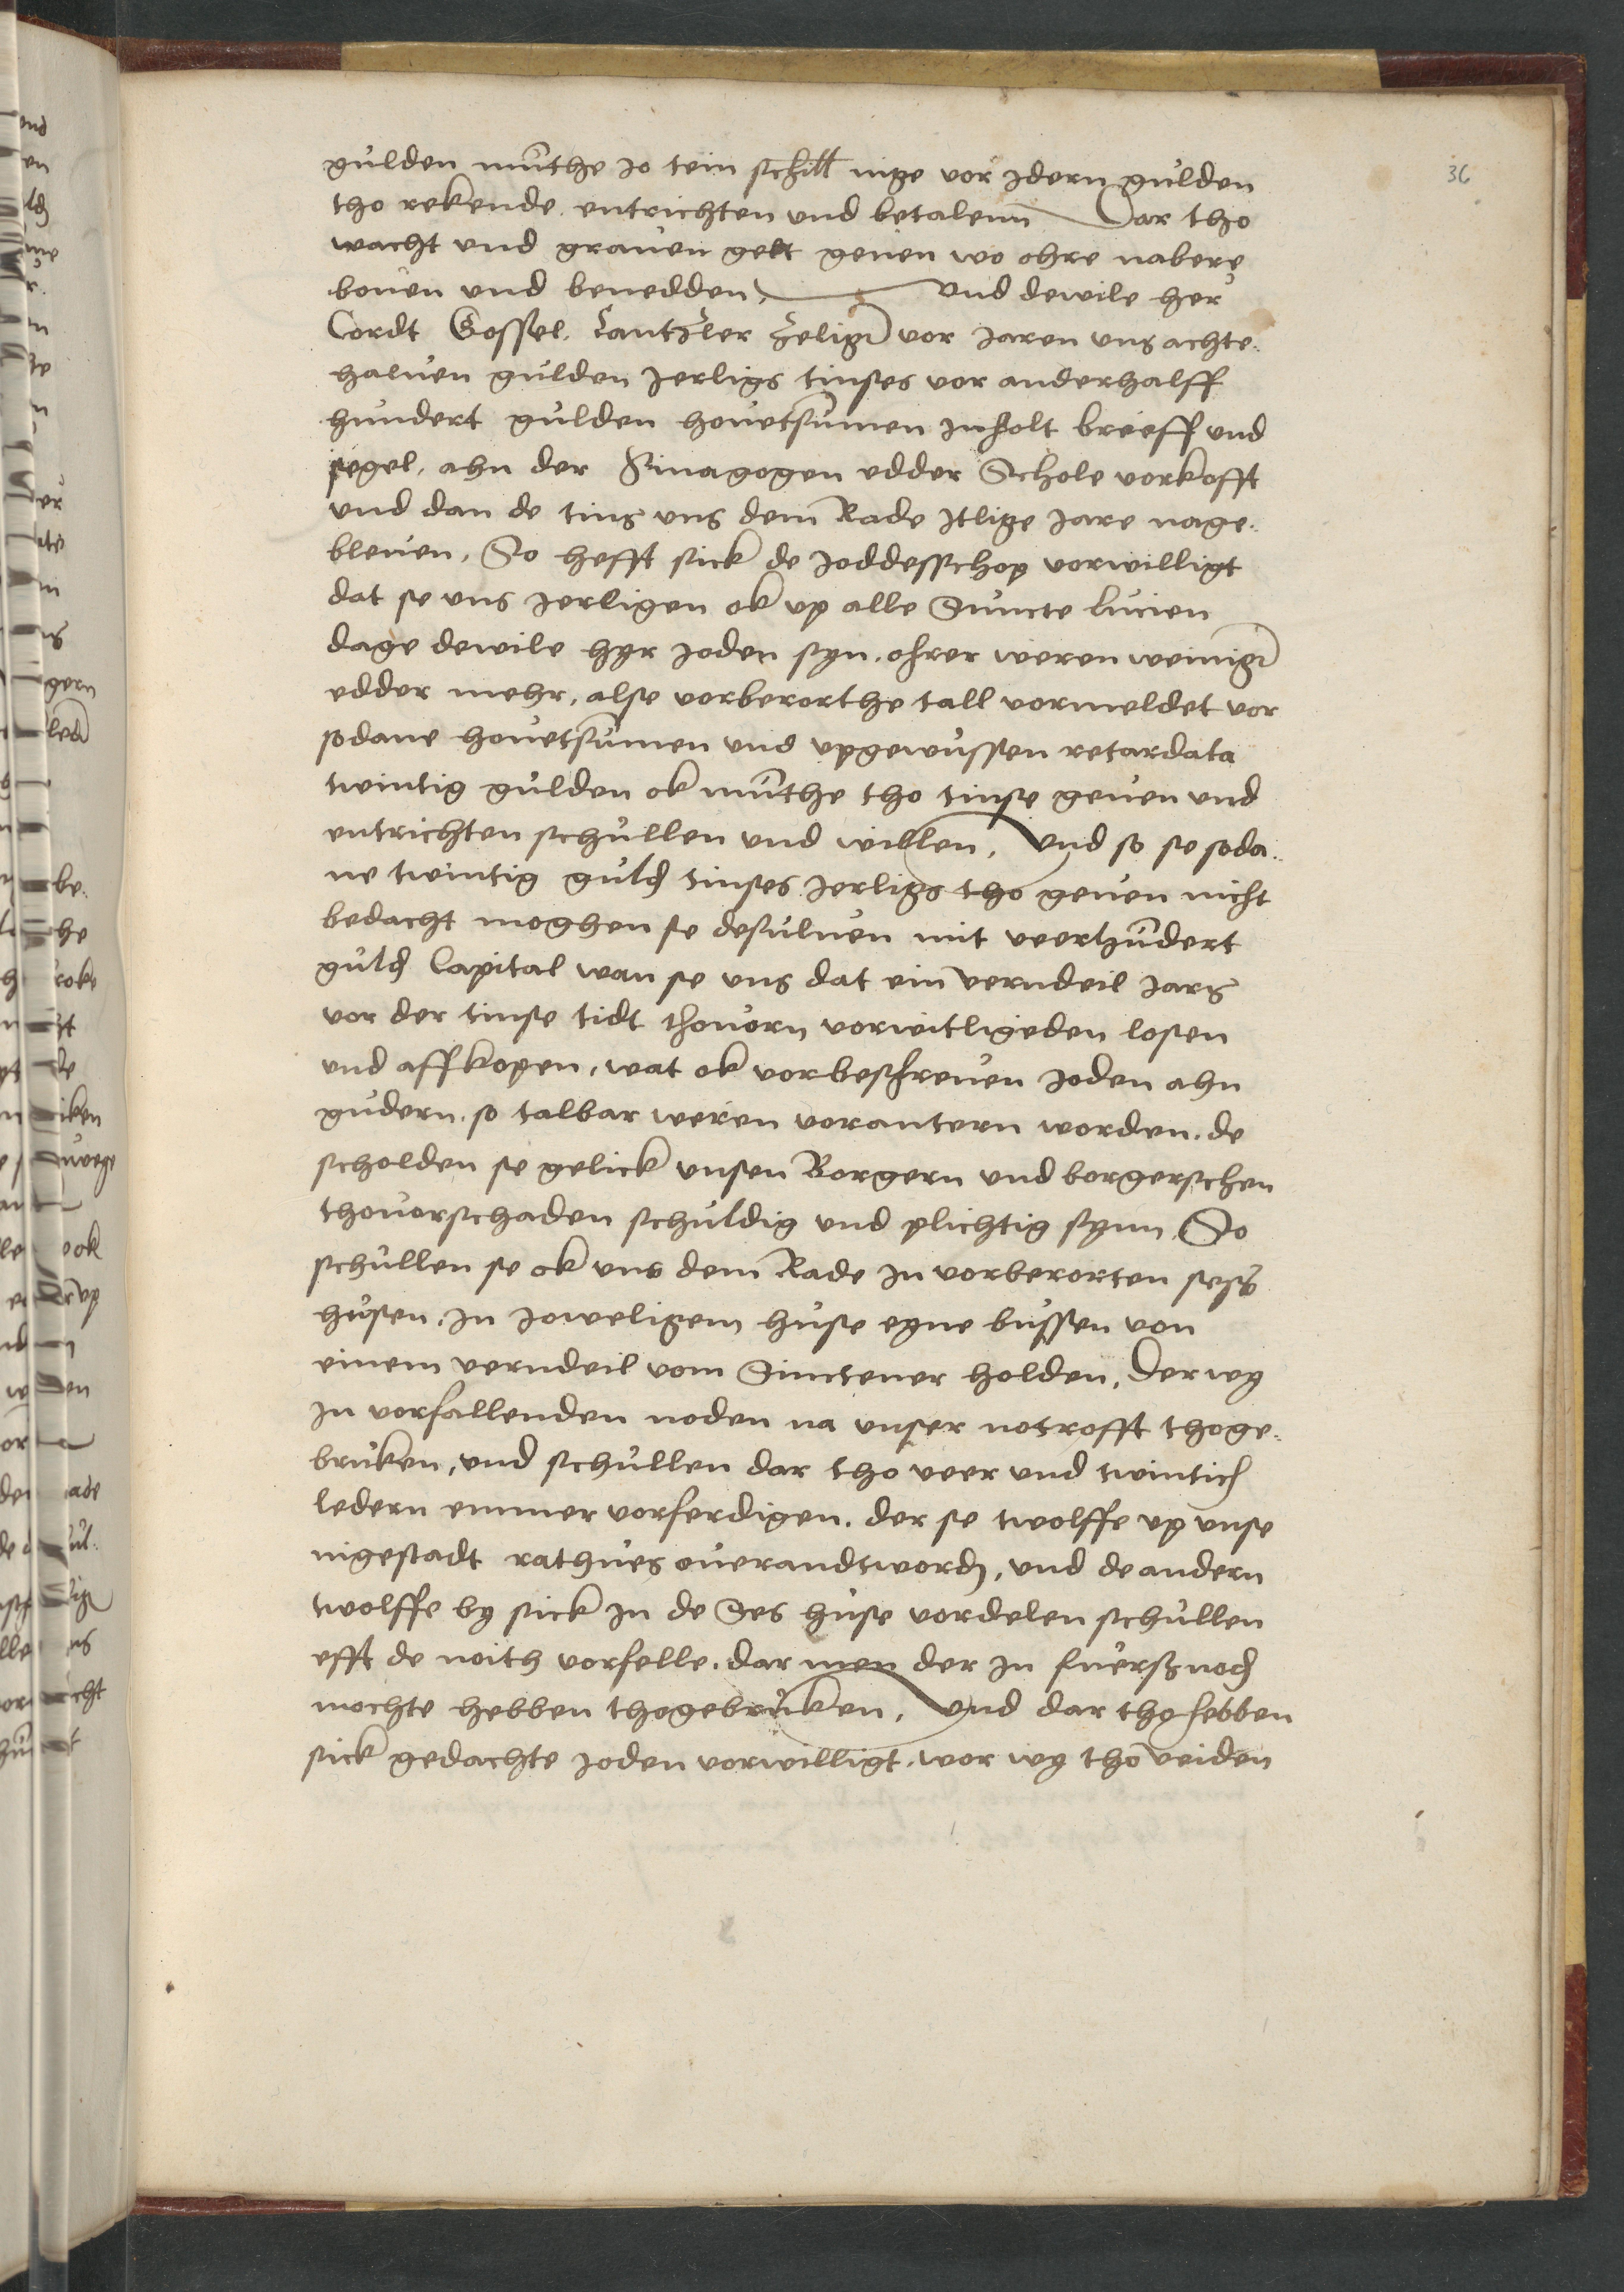 36
gulden munthe Jo tein schill nige vor Jdern gulden
tho rekende. entrichten vnd betalenn Dar tho
wacht vnd grauen gelt geuen wo ohre nabere
bouen vnd benedden, vnd dewile her
Cordt Gossel. Cantzler zelige vor Jaren vns achte.
haluen gulden Jerligs tinses vor anderhalff
hundert gulden houetsumen Jnholt breeff vnd
segel, ahn der Sinagogen edder Schole vorkofft
vnd dan de tins vns dem Rade Jtlige Jare nage.
bleuen, So hefft sick de Joddesschop vorwilligt
dat se vns Jerligen ok vp alle Suncte Lucien
dage dewile hyr Joden syn. ohrer weren weinig
edder mehr, alse vorberorthe tall vormeldet vor
sodane houetsumen vnd vpgewussen retardata
twintig gulden ok munthe tho tinse geuen vnd
entrichten schullen vnd willen, Vnd so se soda.
ne twintig guld tinses Jerligs tho geuen nicht
bedacht moghen se desuluen mit veerhundert
guld Capital wan se vns dat ein verndeil Jars
vor der tinse tidt thouorn vorwitligeden losen
vnd affkopen, wat ok vorbeschreuen Joden ahn
gudern. so talbar weren vorantern worden. de
scholden se gelick vnsen Borgern vnd borgerschen
thouorschaden schuldig vnd plichtig synn So
schullen se ok vns dem Rade Jn vorberorten sess
husen. Jn Joweligem huse eyne bussen von
einem verndeil vom Sinctener holden, Der wy
Jn vorfallenden noden na vnser notrofft thoge.
bruken, vnd schullen dar tho veer vnd twintich
ledern emmer vorferdigen. der se twolffe vp vnse
nigestadt rathues ouerandtword, vnd de andern
twolffe by sick Jn de Ses huse vordelen schullen
efft de noith vorfelle. dar men der Jn fuersnod
mochte hebben thogebruken, Vnd dar tho hebben
sick gedachte Joden vorwilligt. wor wy tho veiden